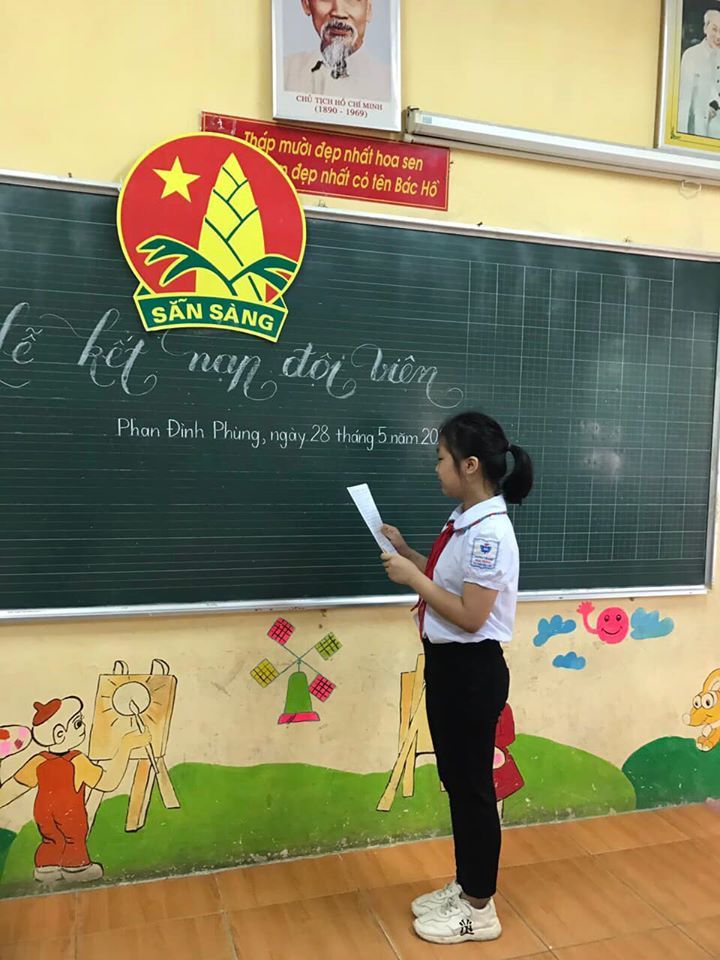 CHỦ TỊCH HỒ CHÍ MINH
(1890 - 1969)
Tháp mười đẹp nhất hoa sen
đẹp nhất có tên Bác Hồ
SẴN SÀNG
lễ kết nạp đội viên
Phan Đình Phùng, ngày 28 tháng 5 năm 20